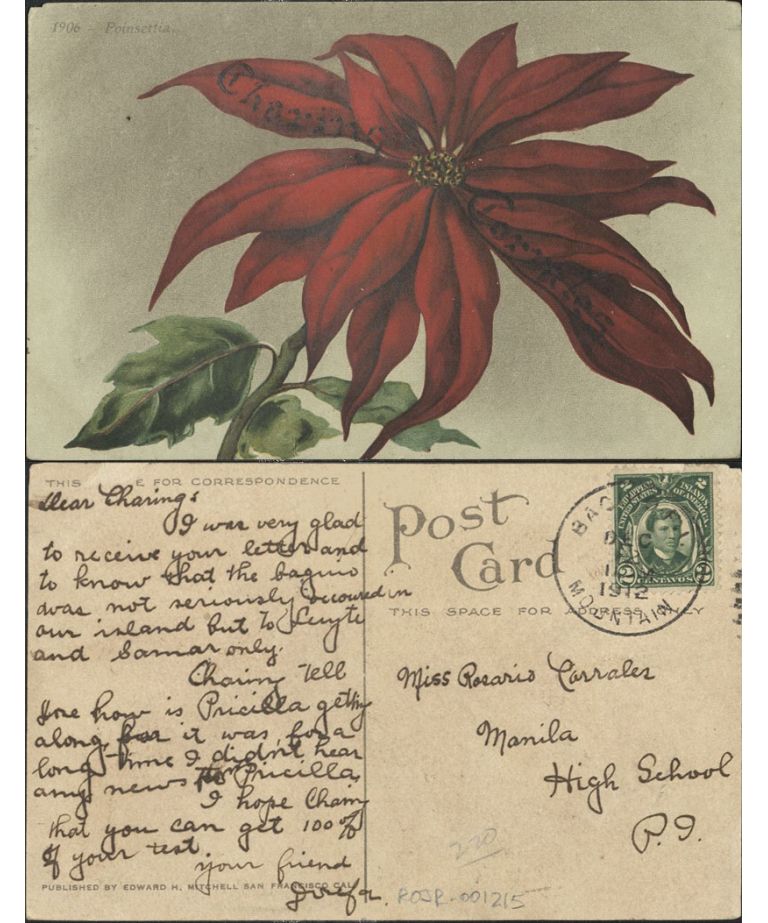 1906 - Poinsettia.
Charing
THIS E FOR CORRESPONDENCE
Dear Charing:
I was very glad
to receive your letter and
to know that the baguio
was not seriously occured in
our island but to Leyte
and Samar only.
Charing Tell
me how is Pricilla getting
along, for it was for a
long time I didn't hear
any news Pricilla
I hope Charing
that you can get 100%
of your test.
your friend
PUBLISHED BY EDWARD H. MITCHELL SAN FRANCISCO CAL.
Post
Card
THIS SPACE FOR ADDRESS ONLY
PHILIPPINE ISLANDS
UNITED STATES OF AMERICA
2 CENTAVOS 2
DEC
1912
MOUNTAIN
Miss Rosario Corrales
Manila
High School
P.I.
220
ROSR-001215